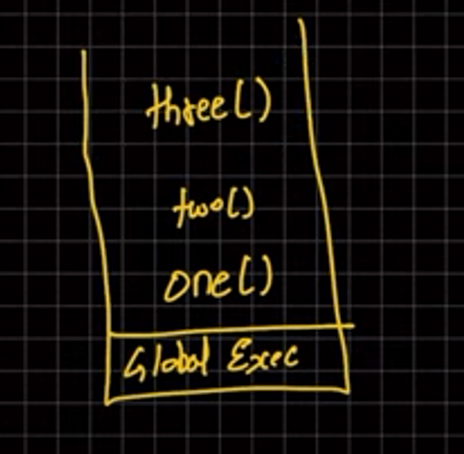 three()
two()
one()
Global Exec